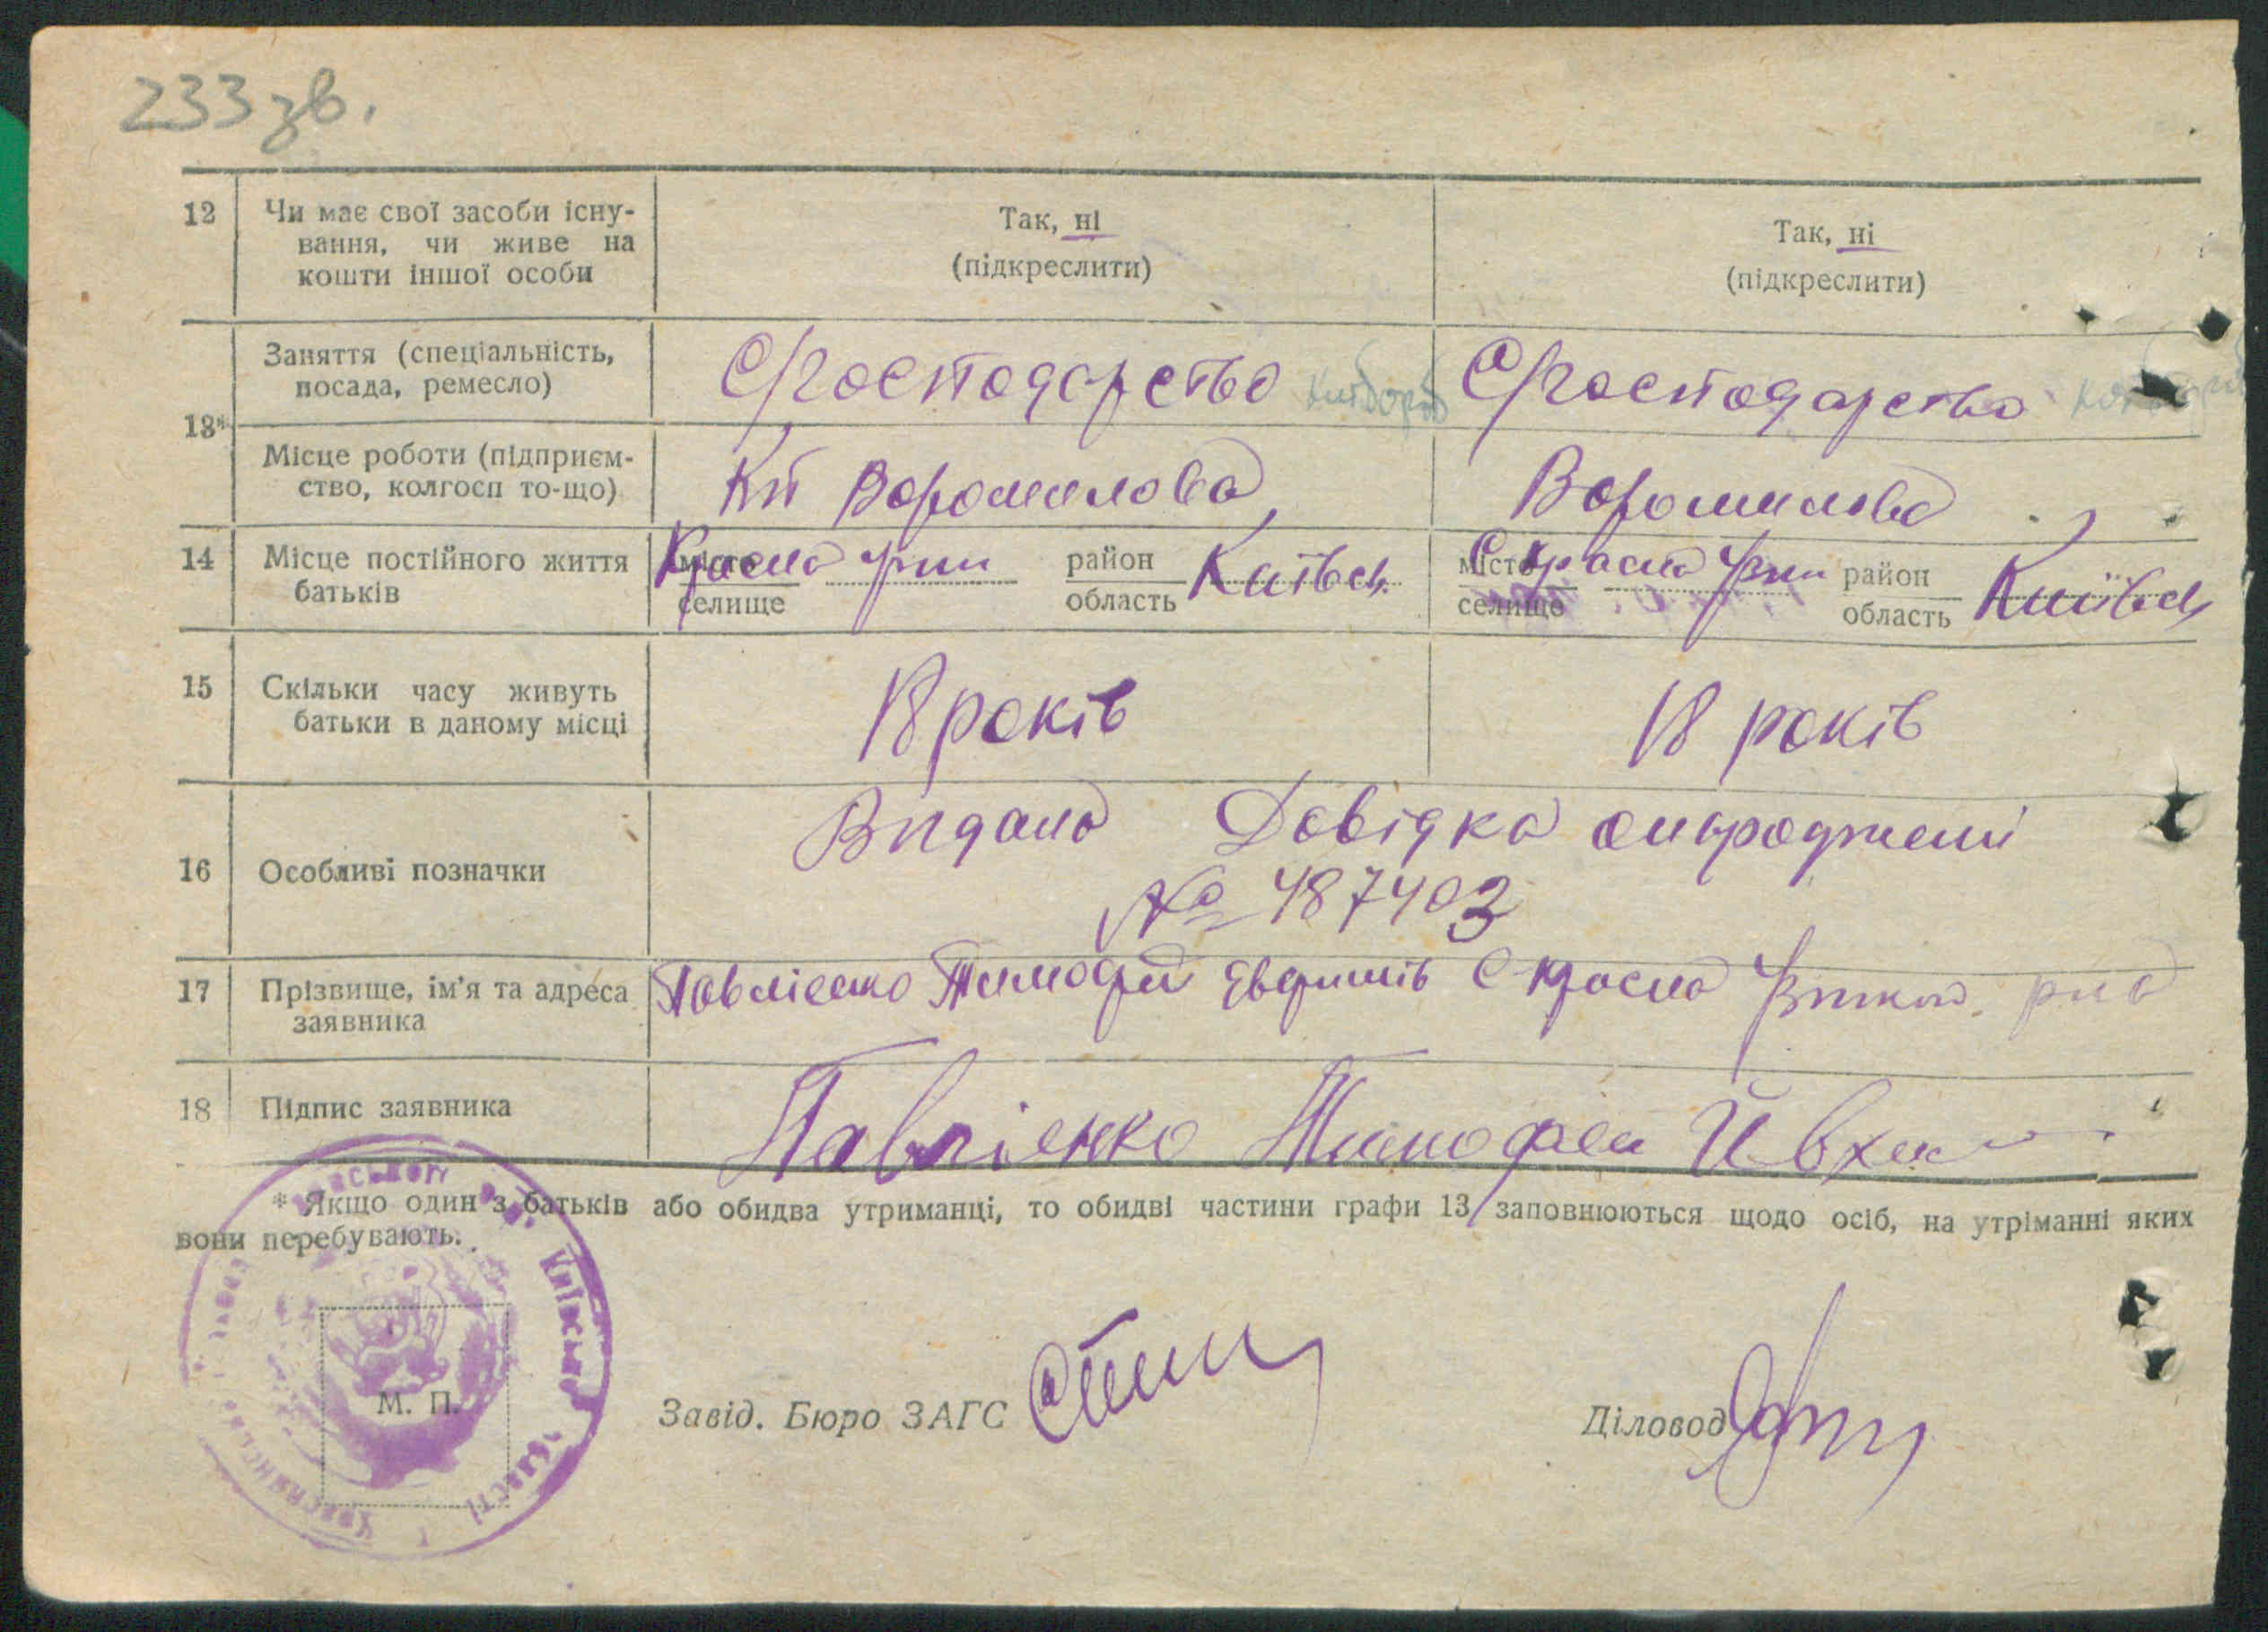 233 зв.
12 Чи має свої засоби існу-
вання, чи живе на
кошти іншої особи
Так, ні
(підкреслити)
Так, ні
(підкреслити)
13*
Заняття (спеціальність,
посада, ремесло)
С/господарство
С/господарство
Місце роботи (підприєм-
ство, колгосп то-що)
Ворошилова
Ворошилова
14 Місце постійного життя
батьків
місто
селище
Красна
район
область
Київск
місто
селище
С Красна
район
область
Київск
15 Скільки часу живуть
батьки в даному місці
18 років
18 років
16 Особливі позначки
Видана Довідка
№ 487403
17 Прізвище, ім'я та адреса
заявника
Павлієнко Тимофій С Красна
18 Підпис заявника
Павлієнко Тимофей
* Якщо один з батьків або обидва утриманці, то обидві частини графи 13 заповнюються щодо осіб, на утріманні яких
вони перебувають.
М. П.
Завід. Бюро ЗАГС
Діловод